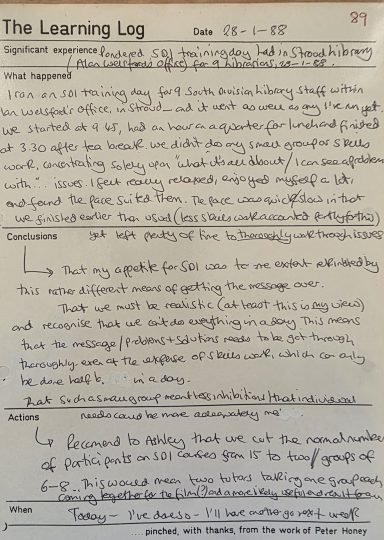 89
The Learning Log Date 28-1-88
Significant experience Pondered SDI training day had in Strood library
(Alan Welsford's Office) for 9 librarians, 28-1-88.
What happened
I ran an SDI training day for 9 South Division library staff within
Ian Welsford's Office, in Strood - and it went as well as any I've run yet.
We started at 9.45, had an hour an a quarter for lunch and finished
at 3.30 after tea break. We didn't do any small group or skills
work, concentrating solely upon "what it's all about / I can see a problem
with".. issues. I felt really relaxed, enjoyed myself a lot,
and found the pace suited them. The pace was quick/slow in that
we finished earlier than usual (less skills work accounted partly for this)
yet left plenty of time to thoroughly work through issues
Conclusions
That my appetite for SDI was to some extent replenished by
this rather different means of getting the message over.
That we must be realistic (at least this is my view)
and recognise that we can't do everything in a day. This means
that the message/problems + solutions needs to be got through
thoroughly even at the expense of skills work, which can only
be done half in a day.
That such a small group meant less inhibition / that individual
needs could be more adequately me
Actions
Recommend to Ashley that we cut the normal number
of participants on SDI courses from 15 to two/groups of
6-8... This would mean two tutors taking one group each
coming together for the film(?) and a more likely useful end result for em
When Today - I've done so - I'll have another go next week
....pinched, with thanks, from the work of Peter Honey